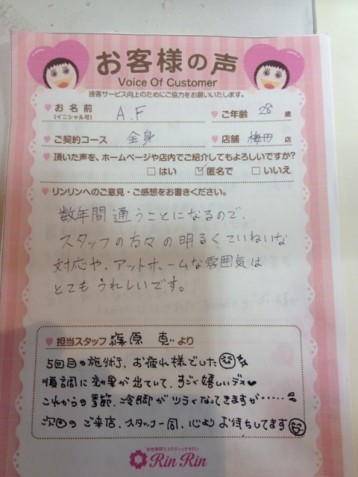 お客様の声
Voice Of Customer
接客サービス向上のためにご協力をお願いいたします。
お名前
(イニシャル可)
A.F
ご年齢 28 歳
ご契約コース 全身
店舗 梅田 店
頂いた声を、ホームページや店内でご紹介してもよろしいですか?
はい
匿名で
いいえ
リンリンへのご意見・ご感想をお書きください。
数年間通うことになるので、
スタッフの方々の明るくていねいな
対応や、アットホームな雰囲気は
とてもうれしいです。
担当スタッフ 篠原 恵 より
5回目の施術、お疲れ様でした
順調に効果が出ていて、すごく嬉しいデス
これからの季節、冷脚がツラくなってきますが……
次回のご来店、スタッフ一同、心よりお待ちしてます
Rin Rin